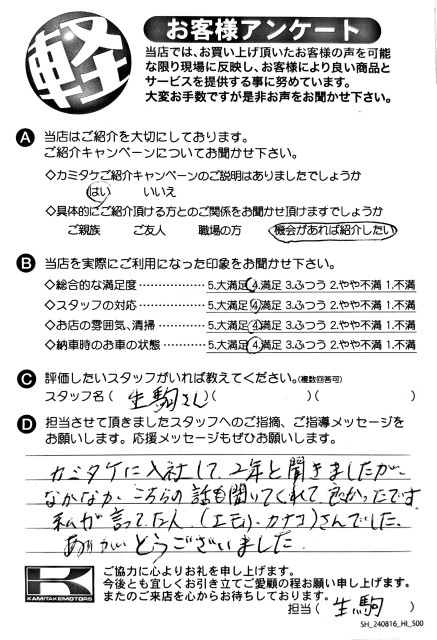 軽
お客様アンケート
当店では、お買い上げ頂いたお客様の声を可能
な限り現場に反映し、お客様により良い商品と
サービスを提供する事に努めています。
大変お手数ですが是非お声をお聞かせ下さい。
A 当店はご紹介を大切にしております。
ご紹介キャンペーンについてお聞かせ下さい。
◇カミタケご紹介キャンペーンのご説明はありましたでしょうか
はい いいえ
◇具体的にご紹介頂ける方とのご関係をお聞かせ頂けますでしょうか
ご親族 ご友人 職場の方 機会があれば紹介したい
B 当店を実際にご利用になった印象をお聞かせ下さい。
◇総合的な満足度……………5.大満足 4.満足 3.ふつう 2.やや不満 1.不満
◇スタッフの対応……………5.大満足 4.満足 3.ふつう 2.やや不満 1.不満
◇お店の雰囲気、清掃………5.大満足 4.満足 3.ふつう 2.やや不満 1.不満
◇納車時のお車の状態………5.大満足 4.満足 3.ふつう 2.やや不満 1.不満
C 評価したいスタッフがいれば教えてください。(複数回答可)
スタッフ名( 生駒さん )( )( )
D 担当させて頂きましたスタッフへのご指摘、ご指導メッセージを
お願いします。応援メッセージもぜひお願いします。
カミタケに入社して、2年と聞きましたが、
なかなか、こちらの話も聞いてくれて良かったです。
私が言ってた人、( )さんでした。
ありがとうございました。
K
KAMITAKEMOTORS
ご協力に心よりお礼を申し上げます。
今後とも宜しくお引き立てご愛顧の程お願い申し上げます。
またのご来店を心からお待ちしております。
担当( 生駒 )
SH_240816_HI_500